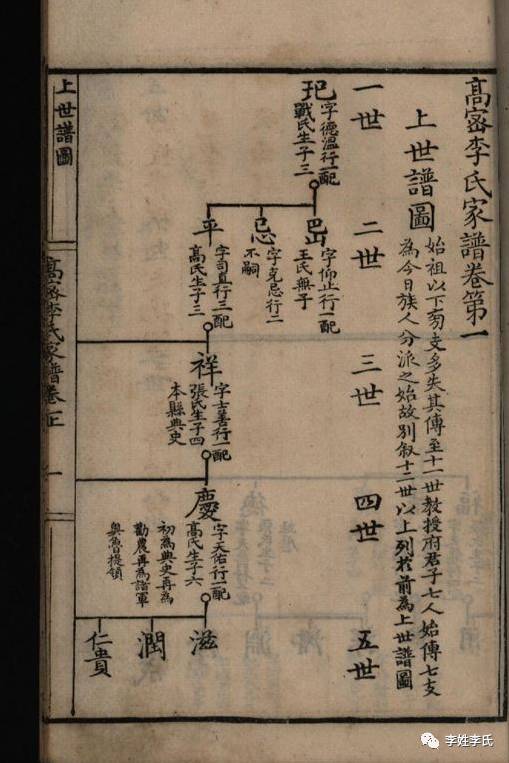 高密李氏家譜卷第一
上世譜圖
始祖以下旁支多失其傳至十一世教授府君子七人始傳七支
為今日族人分派之始故別敘十二世以上列於前為上世譜圖
一世
二世
三世
四世
五世
玘
字德溫行一配
戰氏生子三
岊
字仰止行一配
王氏無子
忌
字克忌行二
不嗣
平
字司直行三配
高氏生子三
祥
字士善行一配
張氏生子四
本縣典史
慶
字天佑行一配
高氏生子六
初為典史再為
勸農再為諸軍
奧魯提領
滋
潤
仁貴
上世譜圖
高密李氏家譜卷上
一
李姓李氏